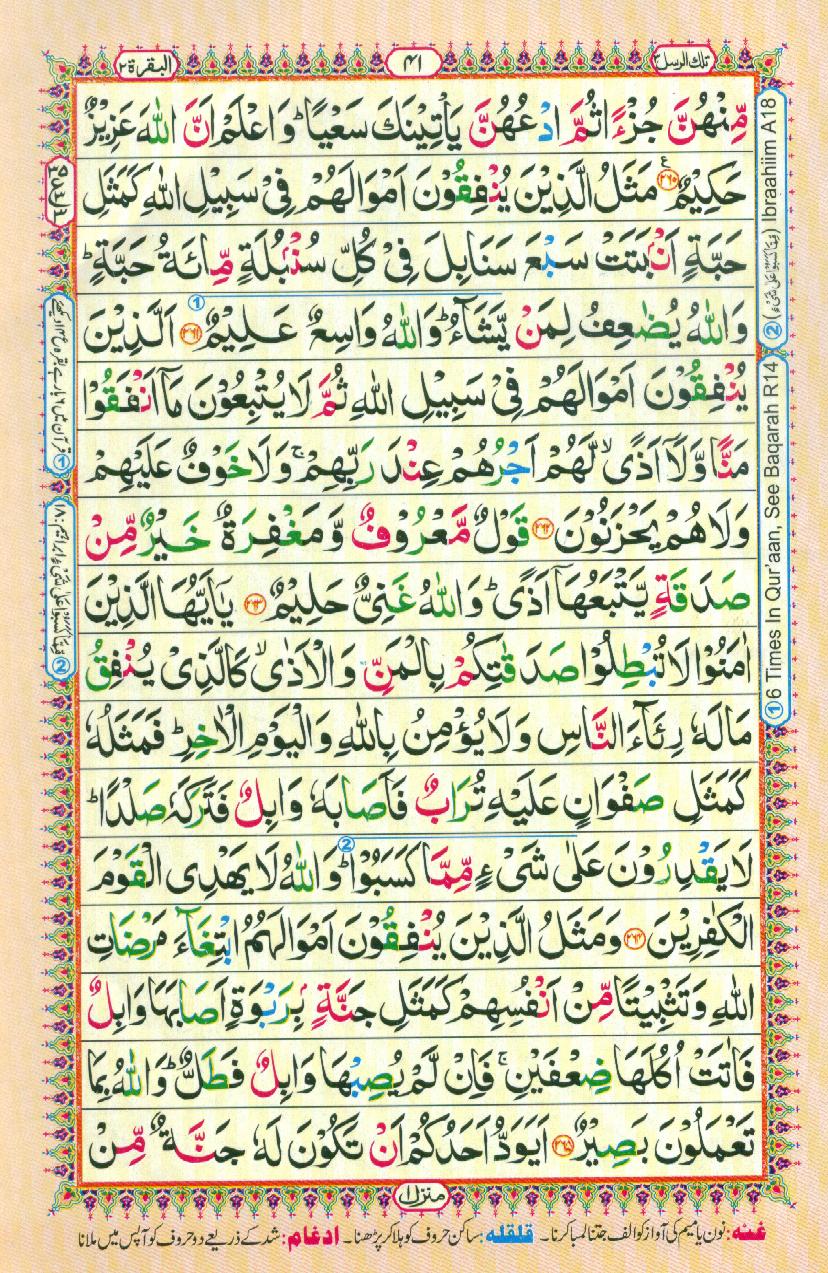 تلك الرسل ٣
٤١
البقرة ٢
مِّنْهُنَّ جُزْءًا ثُمَّ ادْعُهُنَّ يَأْتِينَكَ سَعْيًا ؕ وَاعْلَمْ اَنَّ اللّٰهَ عَزِيْزٌ
حَكِيْمٌ ﴿٢٦٠﴾ ع مَثَلُ الَّذِيْنَ يُنْفِقُوْنَ اَمْوَالَهُمْ فِىْ سَبِيْلِ اللّٰهِ كَمَثَلِ
حَبَّةٍ اَنْۢبَتَتْ سَبْعَ سَنَابِلَ فِىْ كُلِّ سُنْۢبُلَةٍ مِّائَةُ حَبَّةٍ ؕ
وَاللّٰهُ يُضٰعِفُ لِمَنْ يَّشَآءُ ؕ وَاللّٰهُ وَاسِعٌ عَلِيْمٌ ﴿٢٦١﴾ ① اَلَّذِيْنَ
يُنْفِقُوْنَ اَمْوَالَهُمْ فِىْ سَبِيْلِ اللّٰهِ ثُمَّ لَا يُتْبِعُوْنَ مَاۤ اَنْفَقُوْا
مَنًّا وَّلَاۤ اَذًى ۙ لَّهُمْ اَجْرُهُمْ عِنْدَ رَبِّهِمْ ۚ وَلَا خَوْفٌ عَلَيْهِمْ
وَلَا هُمْ يَحْزَنُوْنَ ﴿٢٦٢﴾ قَوْلٌ مَّعْرُوْفٌ وَّمَغْفِرَةٌ خَيْرٌ مِّنْ
صَدَقَةٍ يَّتْبَعُهَاۤ اَذًى ؕ وَاللّٰهُ غَنِىٌّ حَلِيْمٌ ﴿٢٦٣﴾ يٰۤاَيُّهَا الَّذِيْنَ
اٰمَنُوْا لَا تُبْطِلُوْا صَدَقٰتِكُمْ بِالْمَنِّ وَالْاَذٰى ۙ كَالَّذِىْ يُنْفِقُ
مَالَهٗ رِئَآءَ النَّاسِ وَلَا يُؤْمِنُ بِاللّٰهِ وَالْيَوْمِ الْاٰخِرِ ؕ فَمَثَلُهٗ
كَمَثَلِ صَفْوَانٍ عَلَيْهِ تُرَابٌ فَاَصَابَهٗ وَابِلٌ فَتَرَكَهٗ صَلْدًا ؕ
لَا يَقْدِرُوْنَ عَلٰى شَىْءٍ مِّمَّا كَسَبُوْا ؕ ② وَاللّٰهُ لَا يَهْدِى الْقَوْمَ
الْكٰفِرِيْنَ ﴿٢٦٤﴾ وَمَثَلُ الَّذِيْنَ يُنْفِقُوْنَ اَمْوَالَهُمُ ابْتِغَآءَ مَرْضَاتِ
اللّٰهِ وَتَثْبِيْتًا مِّنْ اَنْفُسِهِمْ كَمَثَلِ جَنَّةٍۭ بِرَبْوَةٍ اَصَابَهَا وَابِلٌ
فَاٰتَتْ اُكُلَهَا ضِعْفَيْنِ ۚ فَاِنْ لَّمْ يُصِبْهَا وَابِلٌ فَطَلٌّ ؕ وَاللّٰهُ بِمَا
تَعْمَلُوْنَ بَصِيْرٌ ﴿٢٦٥﴾ اَيَوَدُّ اَحَدُكُمْ اَنْ تَكُوْنَ لَهٗ جَنَّةٌ مِّنْ
منزل ١
① 6 Times In Qur'aan, See Baqarah R14
② (مِمَّا كَسَبُوْا عَلٰى شَىْءٍ) Ibraahiim A18
② مِمَّا كَسَبُوْا عَلٰى شَىْءٍ ابراہیم: ١٨
غنہ: نون یا میم کی آواز کو الف جتنا لمبا کرنا۔ قلقلہ: ساکن حروف کو ہلا کر پڑھنا۔ ادغام: شد کے ذریعے دو حروف کو آپس میں ملانا